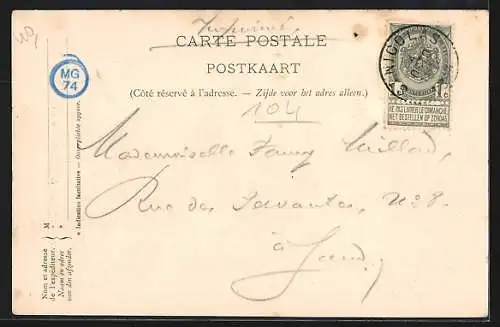 Imprimé
CARTE POSTALE
POSTKAART
(Côté réservé à l'adresse. — Zijde voor het adres alleen.)
104
MG
74
Mademoiselle Fanny
Rue des Savantes, N° 8
à Gand
ST NICOLAS
NE PAS LIVRER LE DIMANCHE
NIET BESTELLEN OP ZONDAG
M
* Indication facultative — Onverplichte opgave.
Nom et adresse
de l'expéditeur.
Naam en adres
van den afzender.